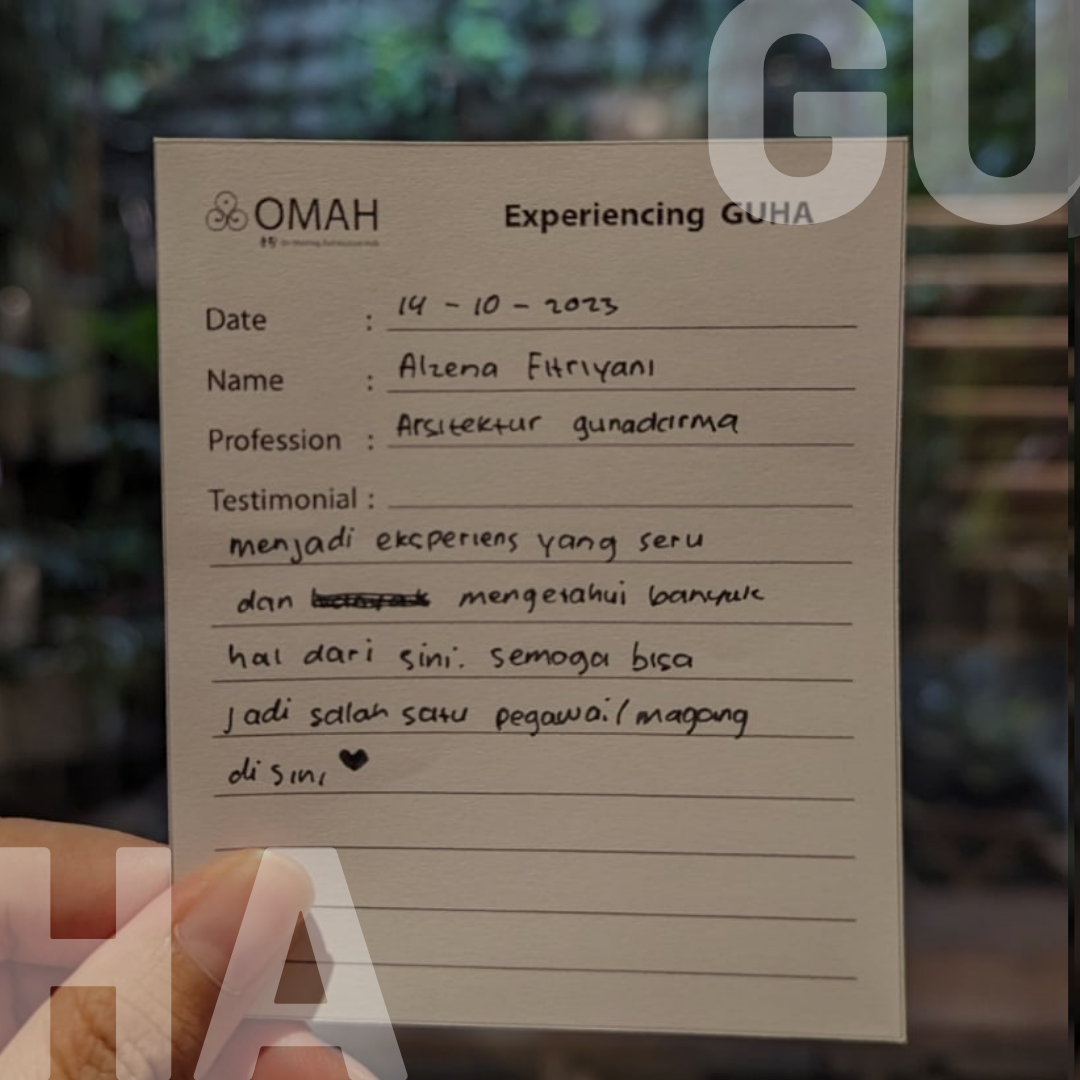 GU
OMAH
Experiencing GUHA
Date : 14 - 10 - 2023
Name : Alzena Fitriyani
Profession : Arsitektur gunadarma
Testimonial :
menjadi eksperiens yang seru
dan banyak mengetahui banyak
hal dari sini. semoga bisa
jadi salah satu pegawai/magang
di sini ♥
HA